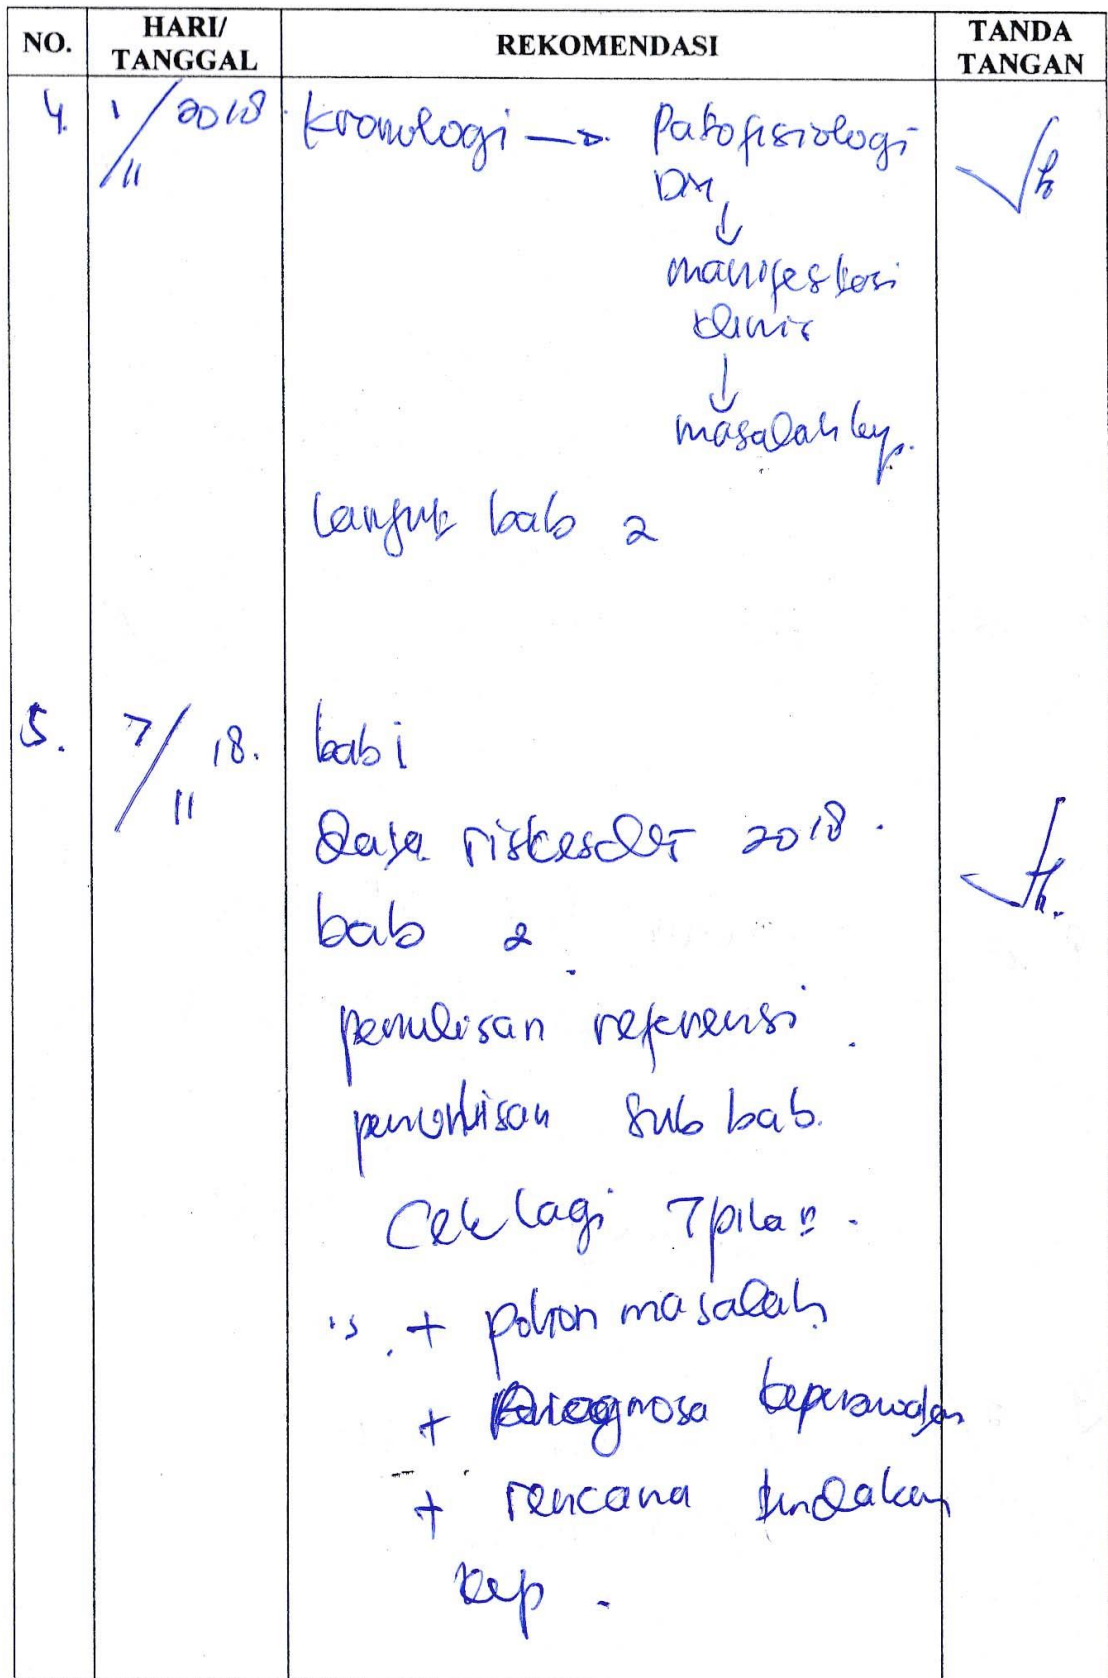 NO. HARI/ TANGGAL REKOMENDASI TANDA TANGAN
4. 1/11 2018 Kronologi → Patofisiologi
DM
↓
manifestasi
klinis
↓
masalah kep.
lanjut bab 2
5. 7/11 18. bab i
Data riskesdas 2018.
bab 2.
penulisan referensi.
penulisan sub bab.
Cek lagi 7 pilar.
+ pohon masalah
+ Diagnosa keperawatan
+ rencana tindakan
kep.